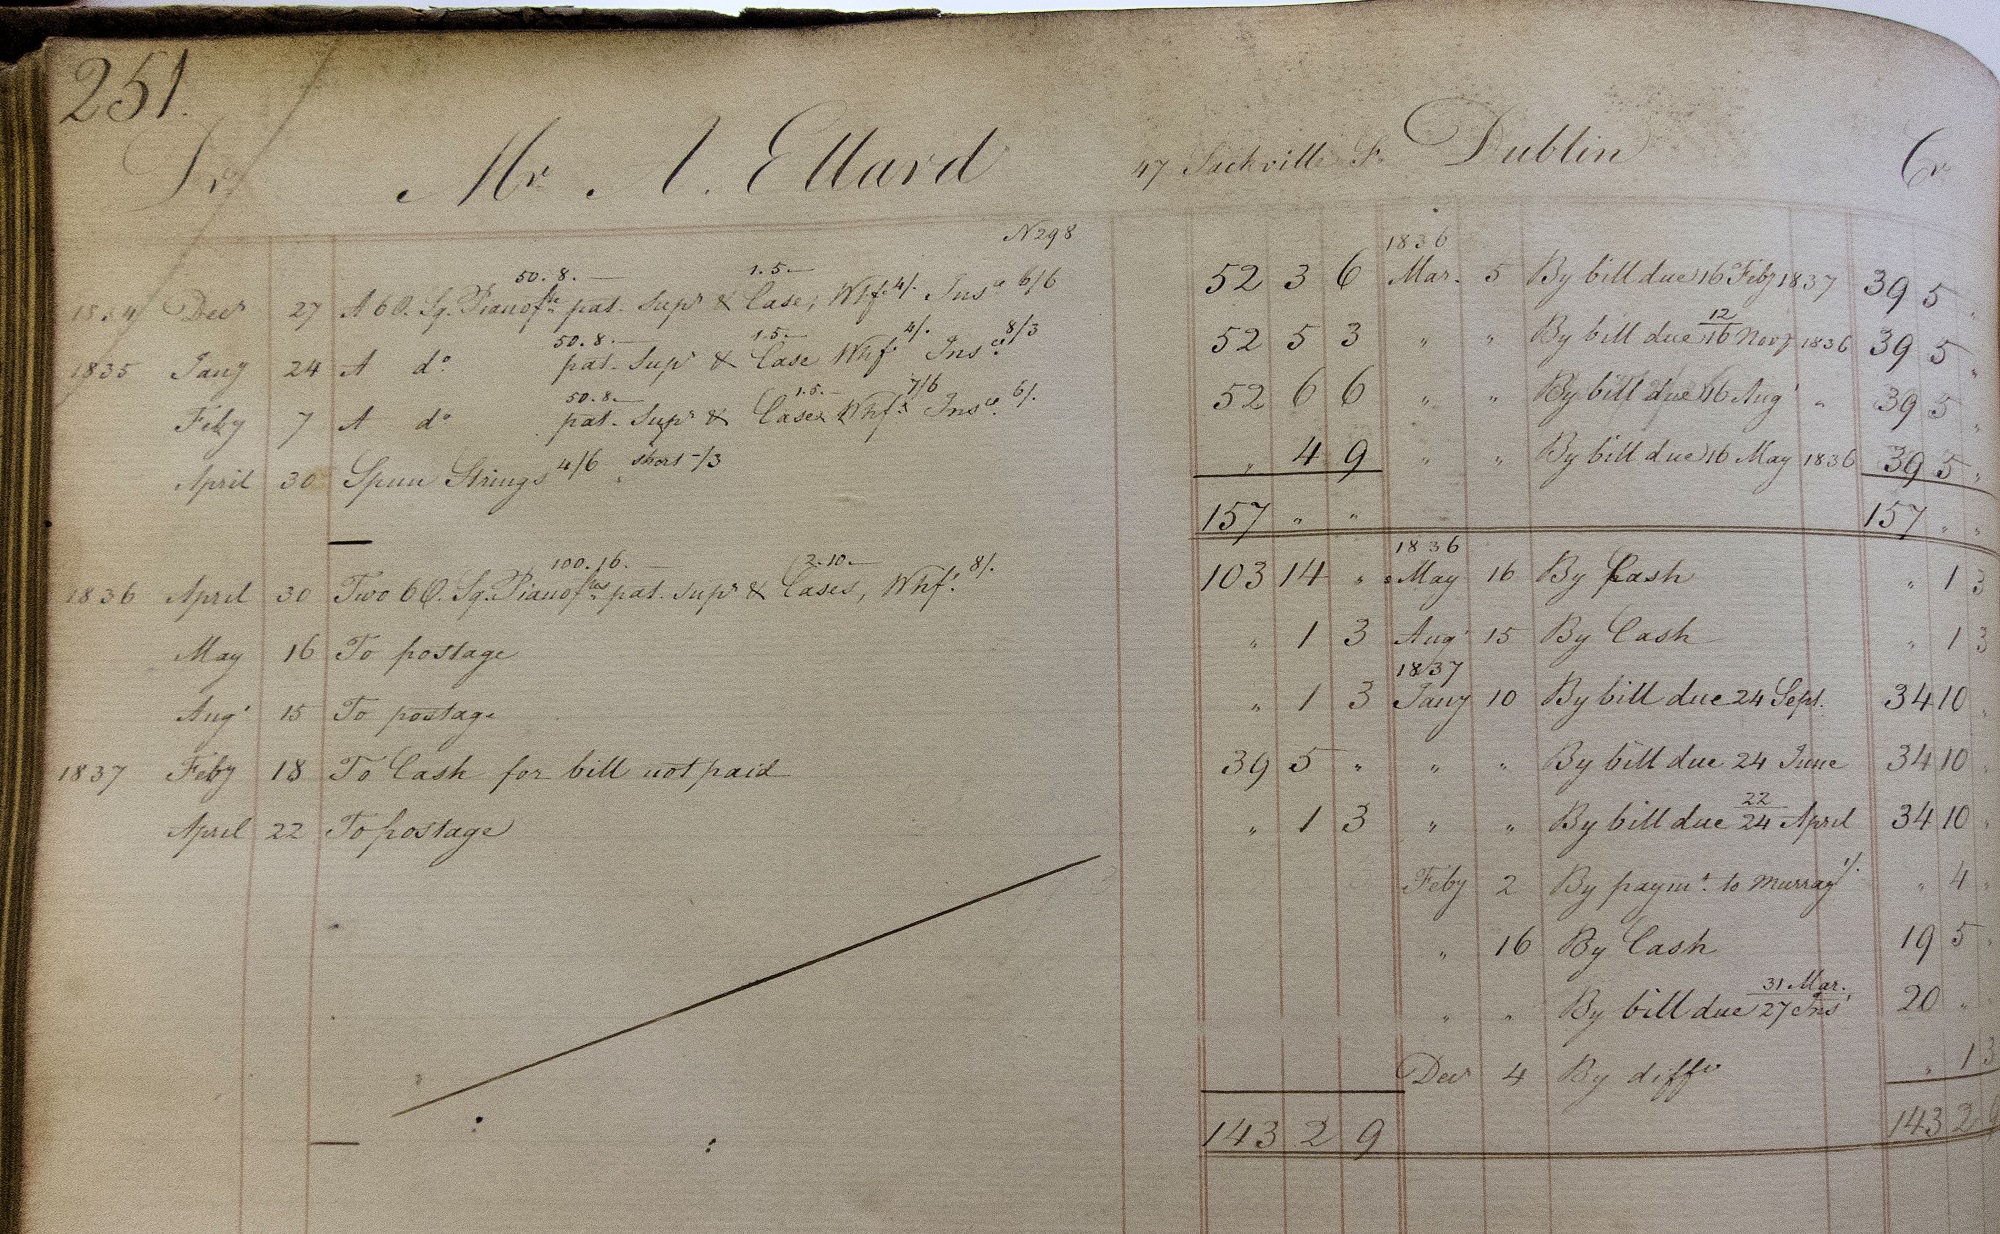 251.
Dr Mr A. Ellard 47 Sackville St. Dublin Cr
N298
50. 8. — 1. 5. —
1834 Decr 27 A 6 O. Sq. Pianofte pat. Supr & Case, Whf. 4/. Insce 6/6 52 3 6
50. 8. — 1. 5. —
1835 Jany 24 A do pat. Supr & Case Whf. 4/. Insce 8/3 52 5 3
50. 8. — 1. 5. —
Feby 7 A do pat. Supr & Case & Whf. 7/6 Insce 6/. 52 6 6
April 30 Spun Strings 4/6 short -/3 " 4 9
157 " "
100. 16. — 2. 10. —
1836 April 30 Two 6 O. Sq. Pianoftes pat. Supr & Cases, Whf. 8/. 103 14 "
May 16 To postage " 1 3
Augt 15 To postage " 1 3
1837 Feby 18 To Cash for bill not paid 39 5 "
April 22 To postage " 1 3
143 2 9
1836
Mar. 5 By bill due 16 Feby 1837 39 5 "
12
" " By bill due 16 Novr 1836 39 5 "
" " By bill due 16 Augt " 39 5 "
" " By bill due 16 May 1836 39 5 "
157 " "
1836
May 16 By Cash " 1 3
Augt 15 By Cash " 1 3
1837
Jany 10 By bill due 24 Sept. 34 10 "
" " By bill due 24 June 34 10 "
22
" " By bill due 24 April 34 10 "
Feby 2 By paymt. to Murray 1/. " 4 "
" 16 By Cash 19 5 "
31 Mar.
" " By bill due 27 Inst 20 "
Decr 4 By diffce " 1 3
143 2 9